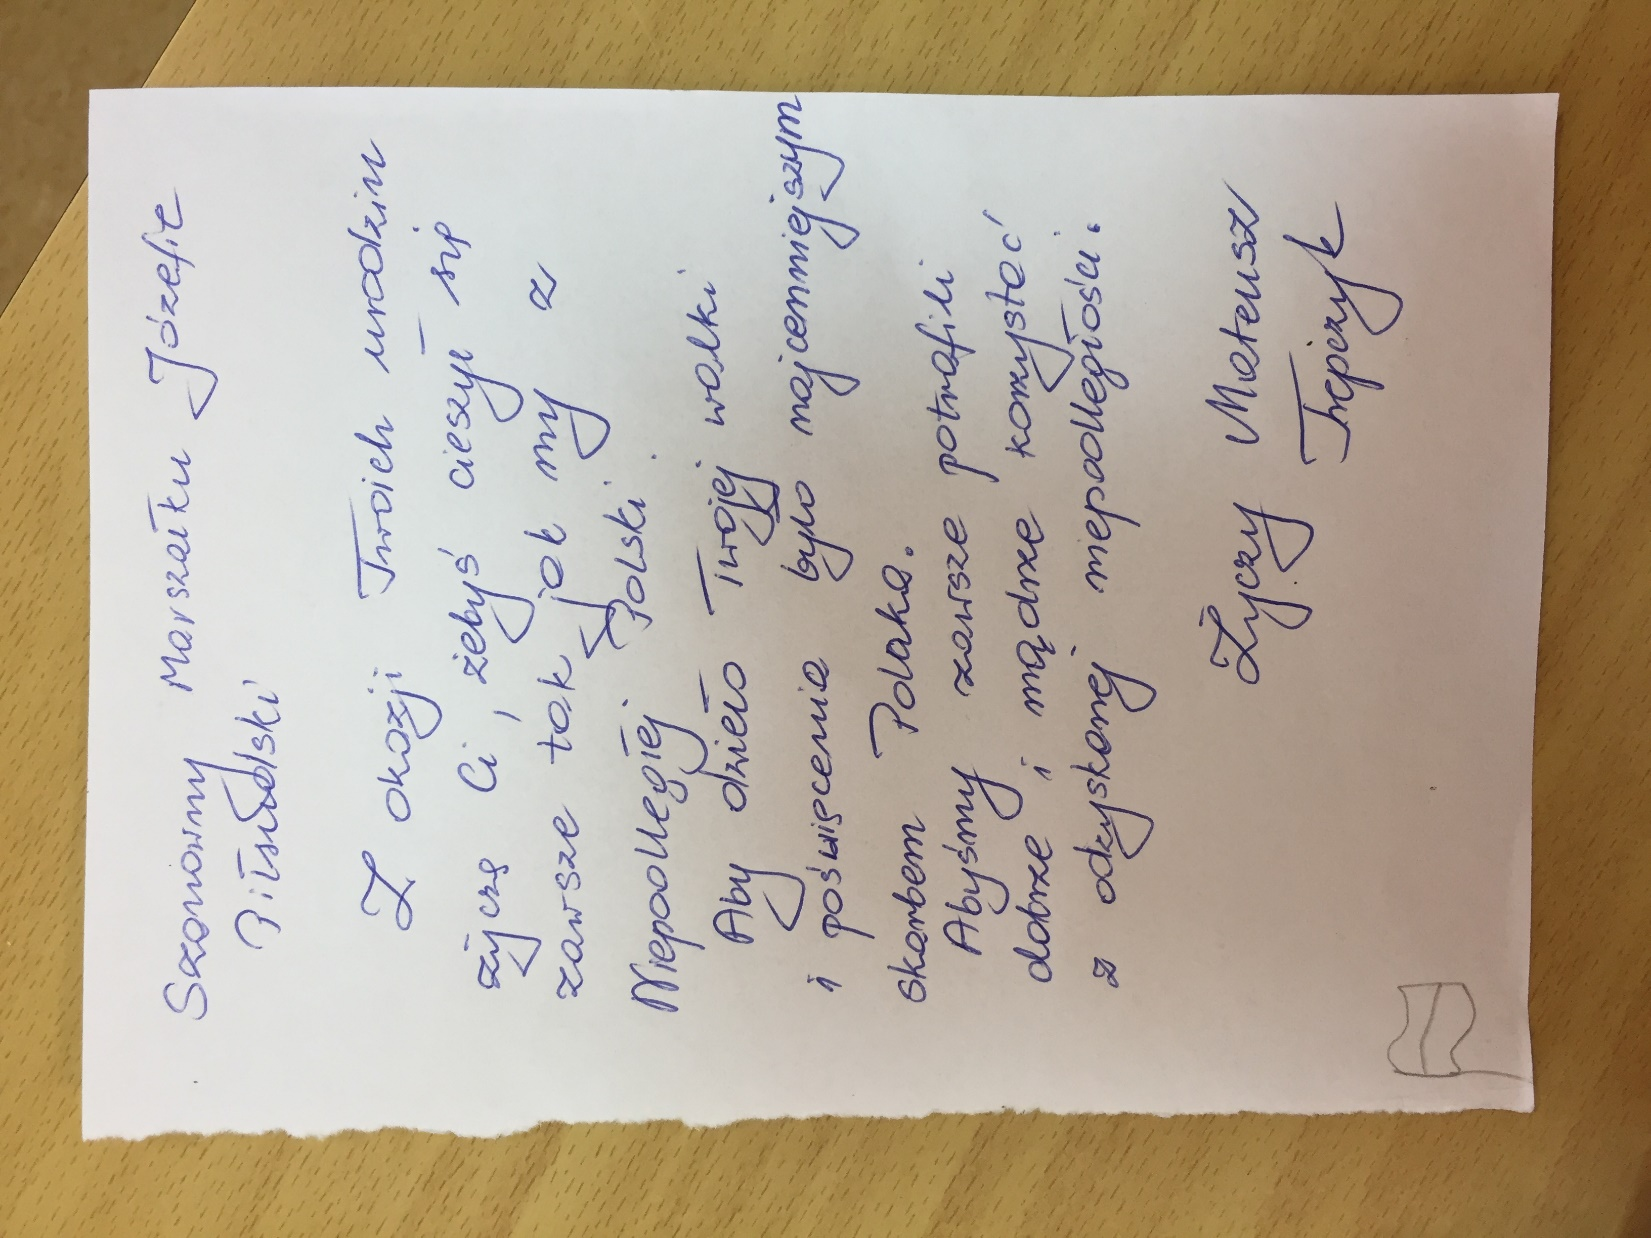 Szanowny Marszałku Józefie
Piłsudski
Z okazji Twoich urodzin
życzę Ci, żebyś cieszył się
zawsze tak jak my z
Niepodległej Polski.
Aby dzieło Twojej walki
i poświęcenia było najcenniejszym
skarbem Polaka.
Abyśmy zawsze potrafili
dobrze i mądrze korzystać
z odzyskanej niepodległości.
Życzy Mateusz
Trepczyk